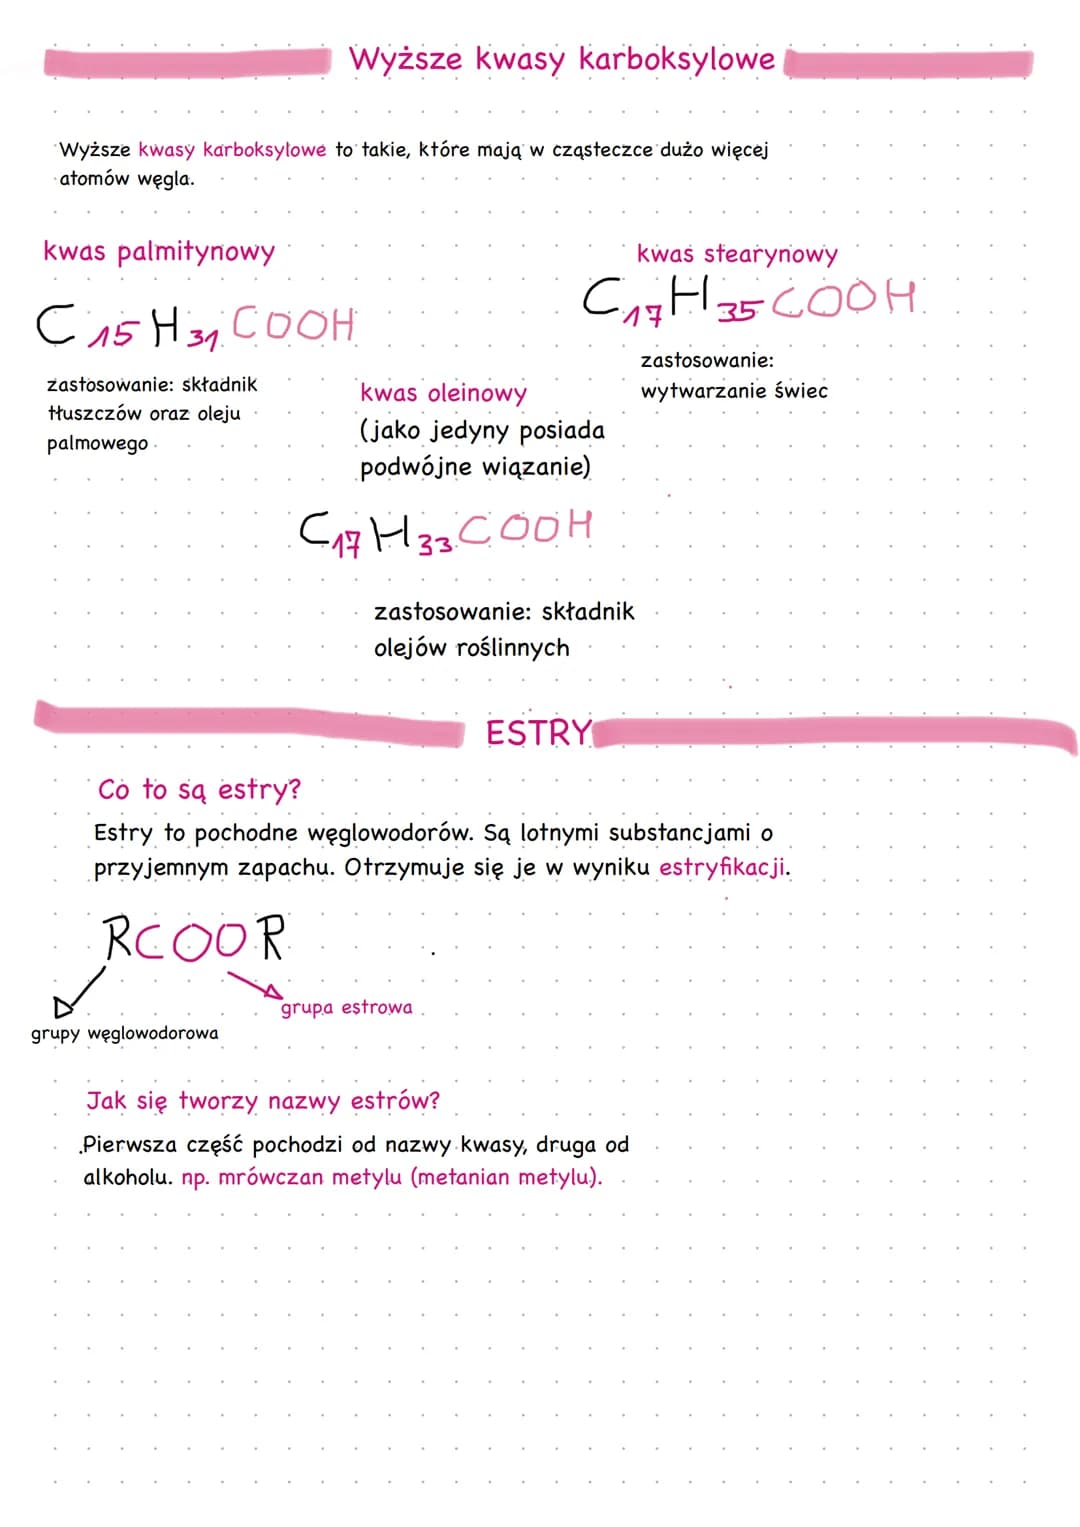 Wyższe kwasy karboksylowe
Wyższe kwasy karboksylowe to takie, które mają w cząsteczce dużo więcej
atomów węgla.
kwas palmitynowy
C15H31COOH
zastosowanie: składnik
tłuszczów oraz oleju
palmowego
kwas stearynowy
C17H35COOH
zastosowanie:
wytwarzanie świec
kwas oleinowy
(jako jedyny posiada
podwójne wiązanie)
C17H33COOH
zastosowanie: składnik
olejów roślinnych
ESTRY
Co to są estry?
Estry to pochodne węglowodorów. Są lotnymi substancjami o
przyjemnym zapachu. Otrzymuje się je w wyniku estryfikacji.
RCOOR
grupa estrowa
grupy węglowodorowa
Jak się tworzy nazwy estrów?
Pierwsza część pochodzi od nazwy kwasy, druga od
alkoholu. np. mrówczan metylu (metanian metylu).